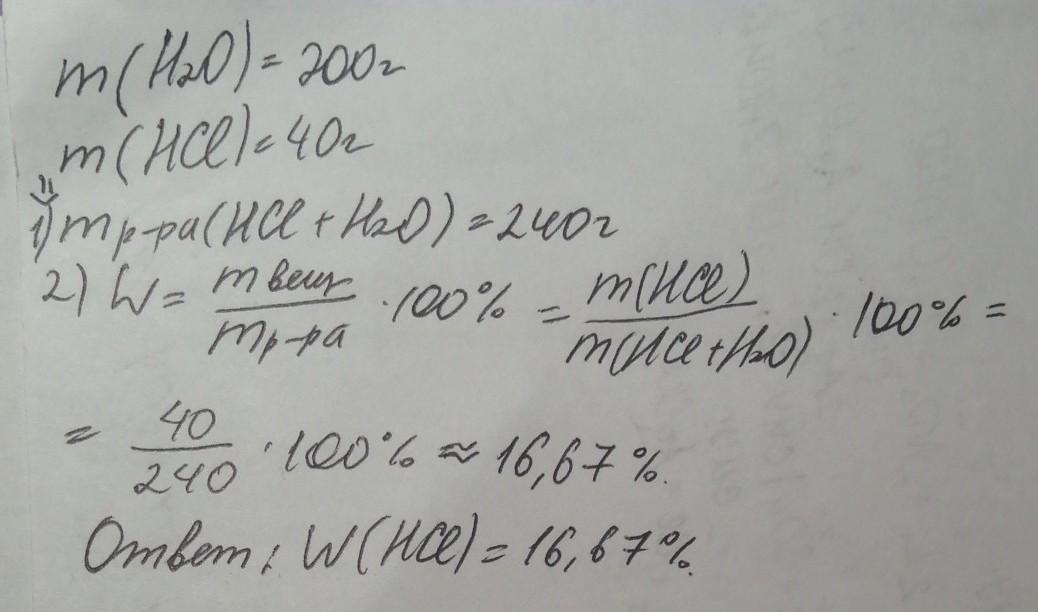 m(H₂O) = 200г
m(HCl) = 40г
1) m р-ра(HCl + H₂O) = 240г
2) W = m вещ / m р-ра · 100% = m(HCl) / m(HCl+H₂O) · 100% =
= 40 / 240 · 100% ≈ 16,67%.
Ответ: W(HCl) = 16,67%.